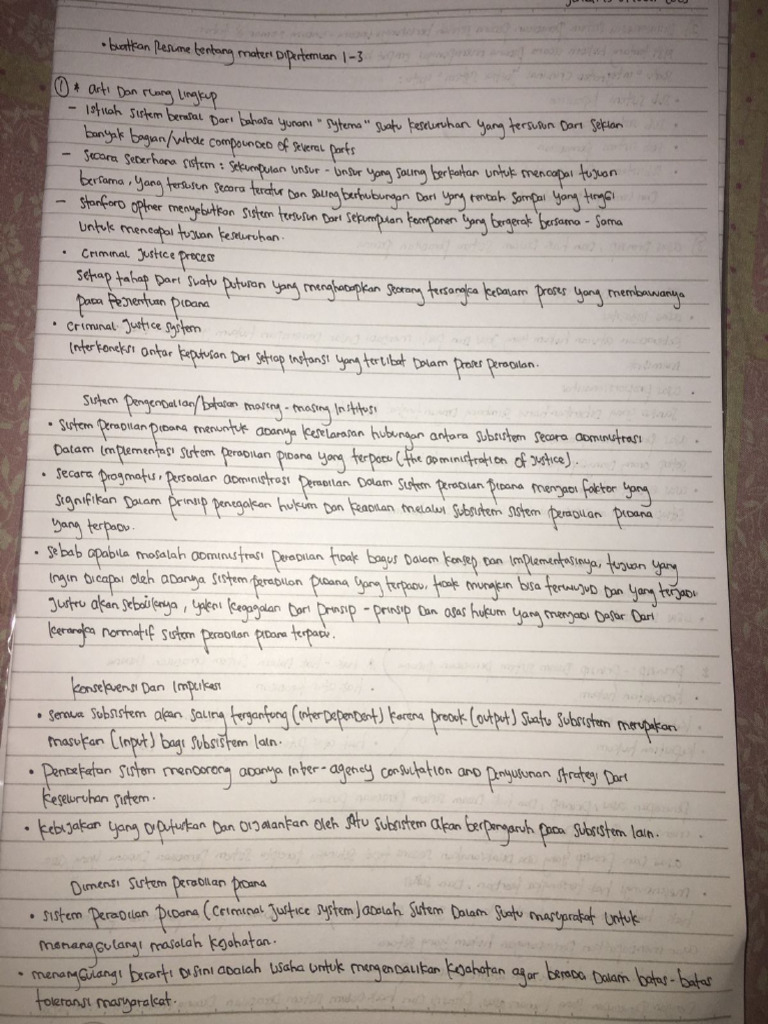 • buatkan Resume tentang materi Dipertemuan 1-3
① * arti Dan ruang lingkup
- Istilah sistem berasal Dari bahasa yunani "sytema" suatu keseluruhan yang tersusun Dari sekian
banyak bagian/whole compounded of several parts
- Secara sederhana sistem : sekumpulan unsur - unsur yang saling berkaitan untuk mencapai tujuan
bersama, yang tersusun secara teratur Dan saling berhubungan Dari yang rendah sampai yang tinggi
- Stanford optner menyebutkan sistem tersusun Dari sekumpulan komponen yang bergerak bersama - sama
untuk mencapai tujuan keseluruhan.
• Criminal Justice process
setiap tahap Dari suatu putusan yang menghadapkan seorang tersangka kedalam proses yang membawanya
pada penentuan pidana
• Criminal Justice system
Interkoneksi antar keputusan Dari setiap instansi yang terlibat Dalam proses peradilan.
Sistem pengendalian/batasan masing - masing Institusi
• Sistem peradilan pidana menuntuk adanya keselarasan hubungan antara subsistem secara administrasi
Dalam implementasi sistem peradilan pidana yang terpadu (the administration of justice).
• Secara pragmatis, persoalan administrasi peradilan Dalam sistem peradilan pidana menjadi faktor yang
signifikan Dalam prinsip penegakan hukum Dan keadilan melalui subsistem sistem peradilan pidana
yang terpadu.
• Sebab apabila masalah administrasi peradilan tidak bagus Dalam konsep Dan Implementasinya, tujuan yang
ingin Dicapai oleh adanya sistem peradilan pidana yang terpadu, tidak mungkin bisa terwujud Dan yang terjadi
Justru akan sebaiknya, yakni kegagalan Dari prinsip - prinsip Dan asas hukum yang menjadi Dasar Dari
kerangka normatif sistem peradilan pidana terpadu.
Konsekuensi Dan Implikasi
• Semua subsistem akan saling tergantung (interdependent) karena produk (output) suatu subsistem merupakan
masukan (input) bagi subsistem lain.
• Pendekatan sistem mendorong adanya inter-agency consultation and penyusunan strategi Dari
keseluruhan sistem.
• Kebijakan yang Diputuskan Dan Dijalankan oleh satu subsistem akan berpengaruh pada subsistem lain.
Dimensi sistem peradilan pidana
• Sistem peradilan pidana (criminal justice system) adalah sistem Dalam suatu masyarakat untuk
menanggulangi masalah kejahatan.
• menanggulangi berarti Disini adalah usaha untuk mengendalikan kejahatan agar berada Dalam batas-batas
toleransi masyarakat.